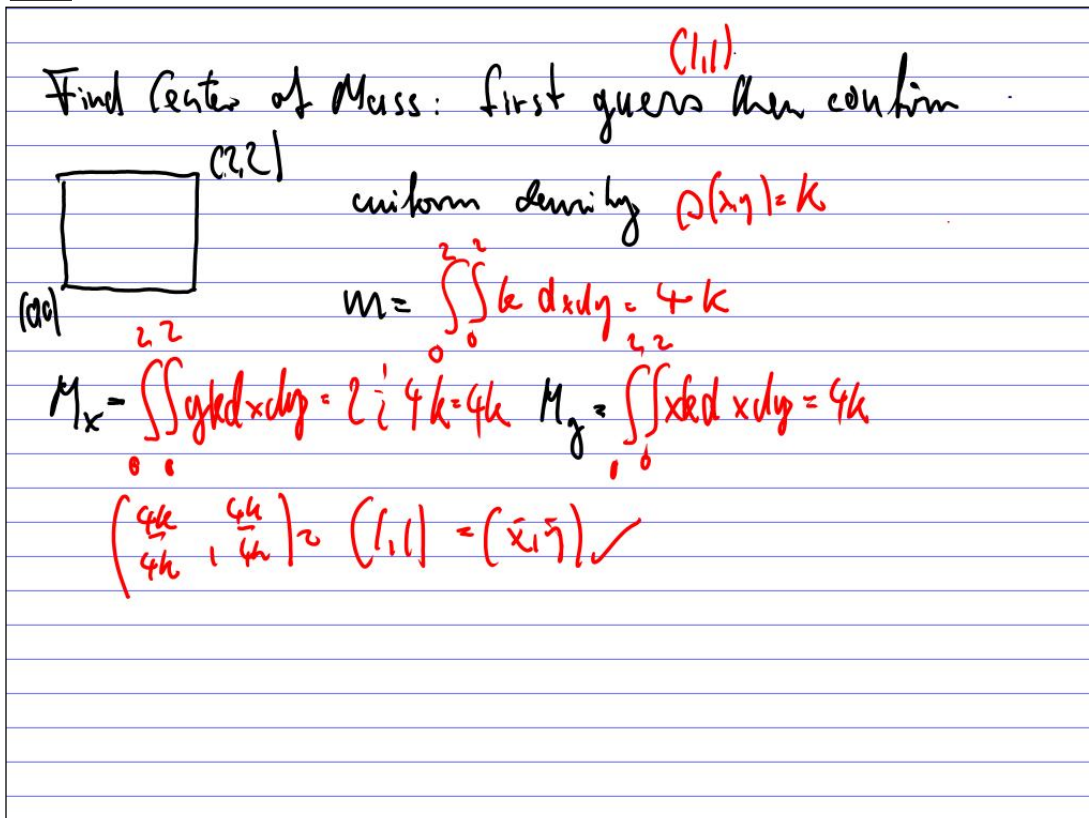 (1,1)
Find Center of Mass: first guess then confirm
(2,2)
uniform density ρ(x,y)=k
(0,0)
m= ∫₀² ∫₀² k dxdy = 4k
M_x = ∫₀² ∫₀² ykdxdy = 2 · 4k=4k M_y = ∫₀² ∫₀² xkdxdy = 4k
(4k/4k , 4k/4k) = (1,1) = (x̄,ȳ) ✓